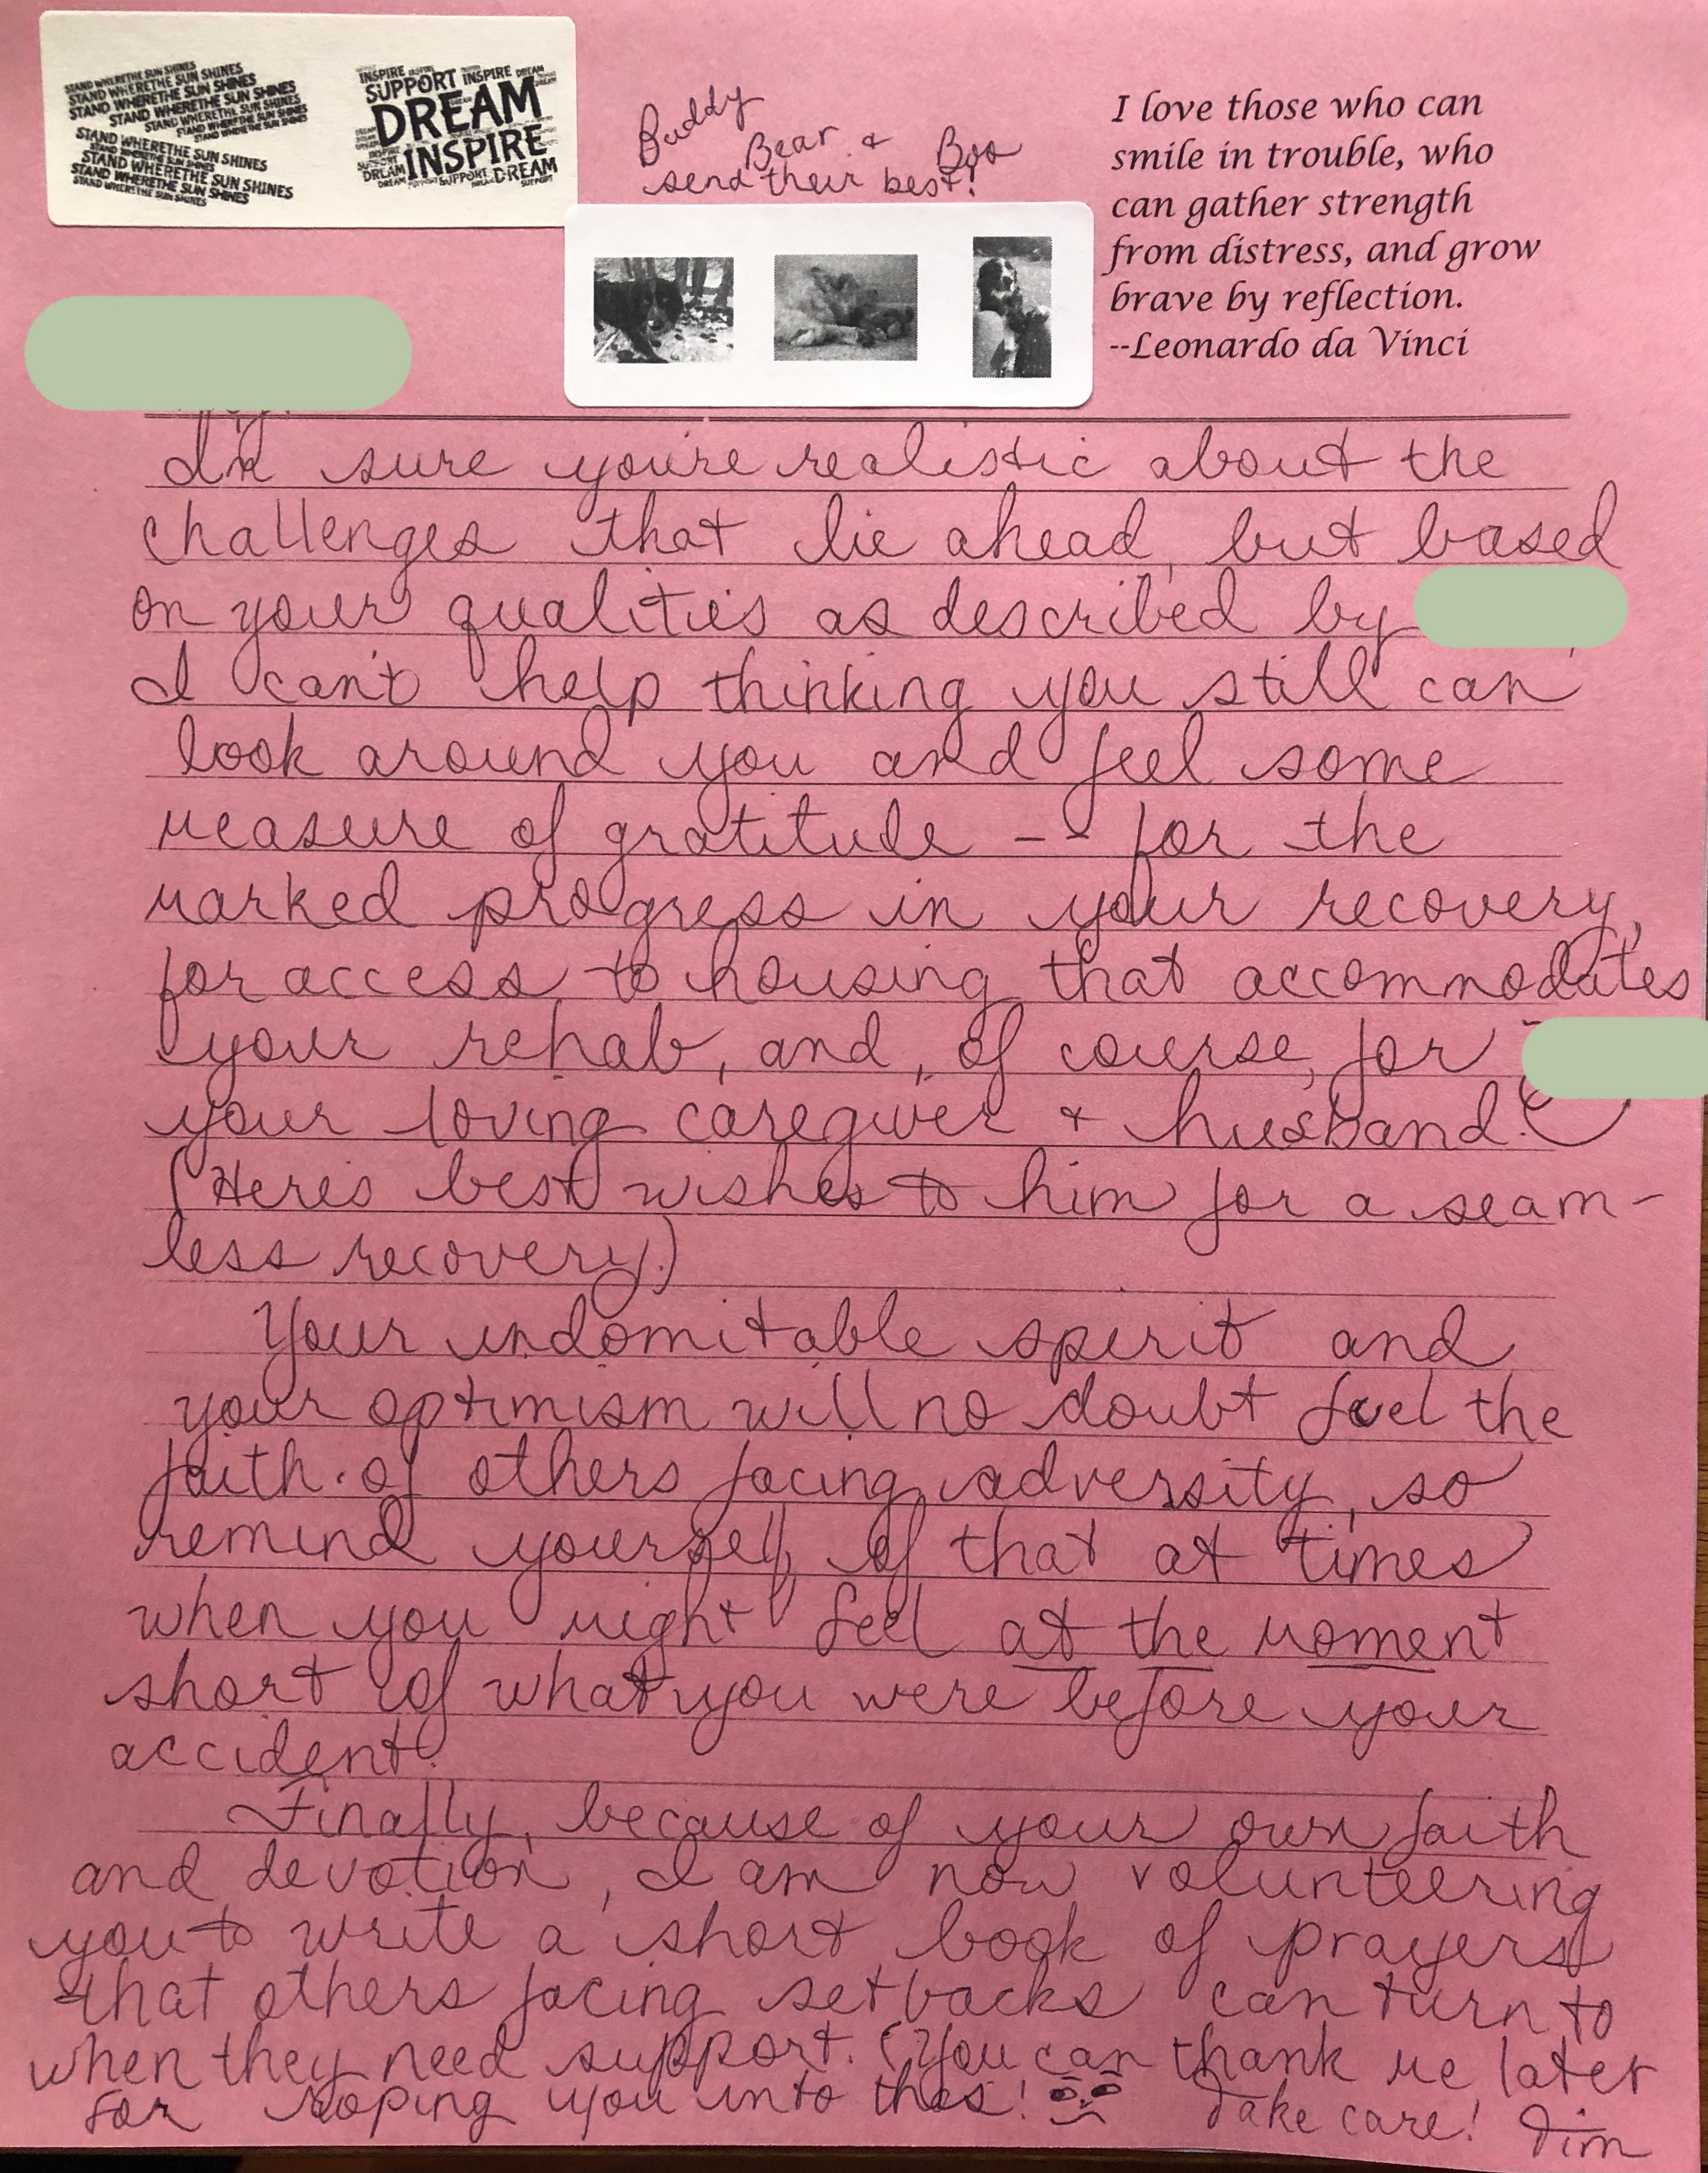 STAND WHERETHE SUN SHINES
STAND WHERETHE SUN SHINES
STAND WHERETHE SUN SHINES
STAND WHERETHE SUN SHINES
STAND WHERETHE SUN SHINES
STAND WHERETHE SUN SHINES
STAND WHERETHE SUN SHINES
STAND WHERETHE SUN SHINES
STAND WHERETHE SUN SHINES
STAND WHERETHE SUN SHINES
STAND WHERETHE SUN SHINES
INSPIRE INSPIRE DREAM
SUPPORT INSPIRE
DREAM
INSPIRE
SUPPORT
INSPIRE
DREAM
DREAM SUPPORT DREAM
SUPPORT
Buddy
Bear & Boo
send their best!
I love those who can
smile in trouble, who
can gather strength
from distress, and grow
brave by reflection.
--Leonardo da Vinci
I'm sure you're realistic about the
challenges that lie ahead, but based
on your qualities as described by
I can't help thinking you still can
look around you and feel some
measure of gratitude -- for the
marked progress in your recovery,
for access to housing that accommodates
your rehab, and, of course, for
your loving caregiver & husband.
(Here's best wishes to him for a seam-
less recovery.)
Your indomitable spirit and
your optimism will no doubt fuel the
faith of others facing adversity, so
remind yourself of that at times
when you might feel at the moment
short of what you were before your
accident.
Finally, because of your own faith
and devotion, I am now volunteering
you to write a short book of prayers
that others facing setbacks can turn to
when they need support. (You can thank me later
for roping you into this! Take care! Jim